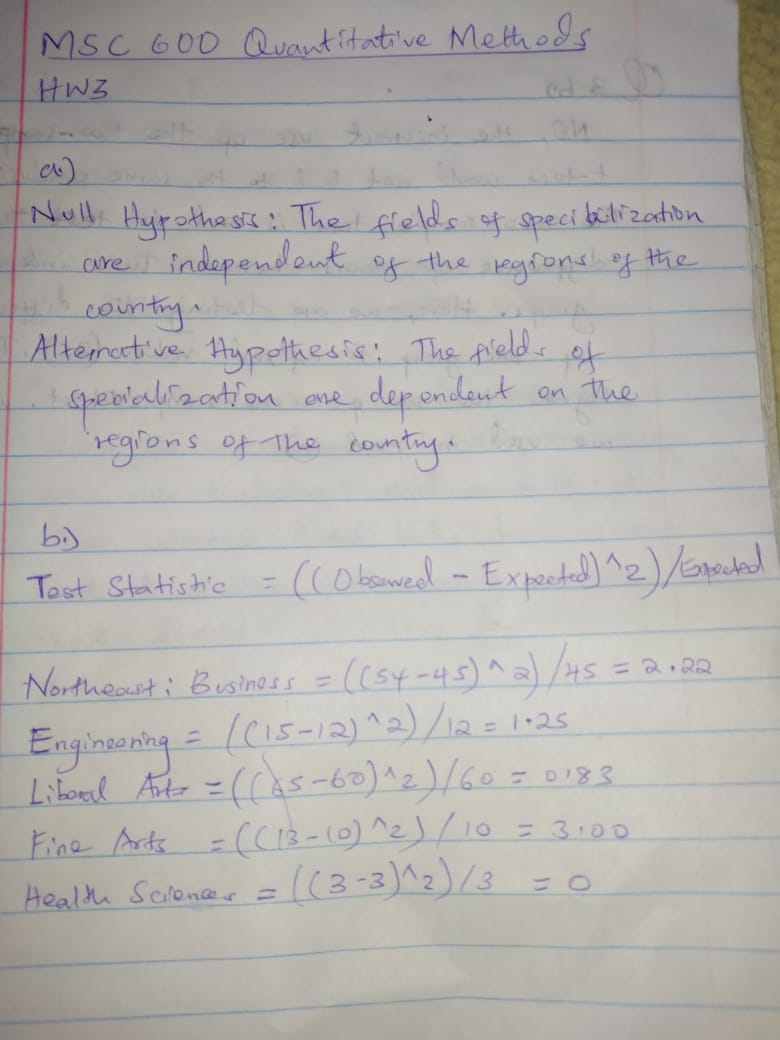 MSC 600 Quantitative Methods
HW3
a.)
Null Hypothesis: The fields of specibilization
are independent of the regions of the
country.
Alternative Hypothesis: The fields of
specialization are dependent on the
regions of the country.
b.)
Test Statistic = ((Observed - Expected)^2)/Expected
Northeast: Business = ((54-45)^2)/45 = 2.22
Engineering = ((15-12)^2)/12 = 1.25
Liberal Arts = ((65-60)^2)/60 = 0.83
Fine Arts = ((13-10)^2)/10 = 3.00
Health Sciences = ((3-3)^2)/3 = 0